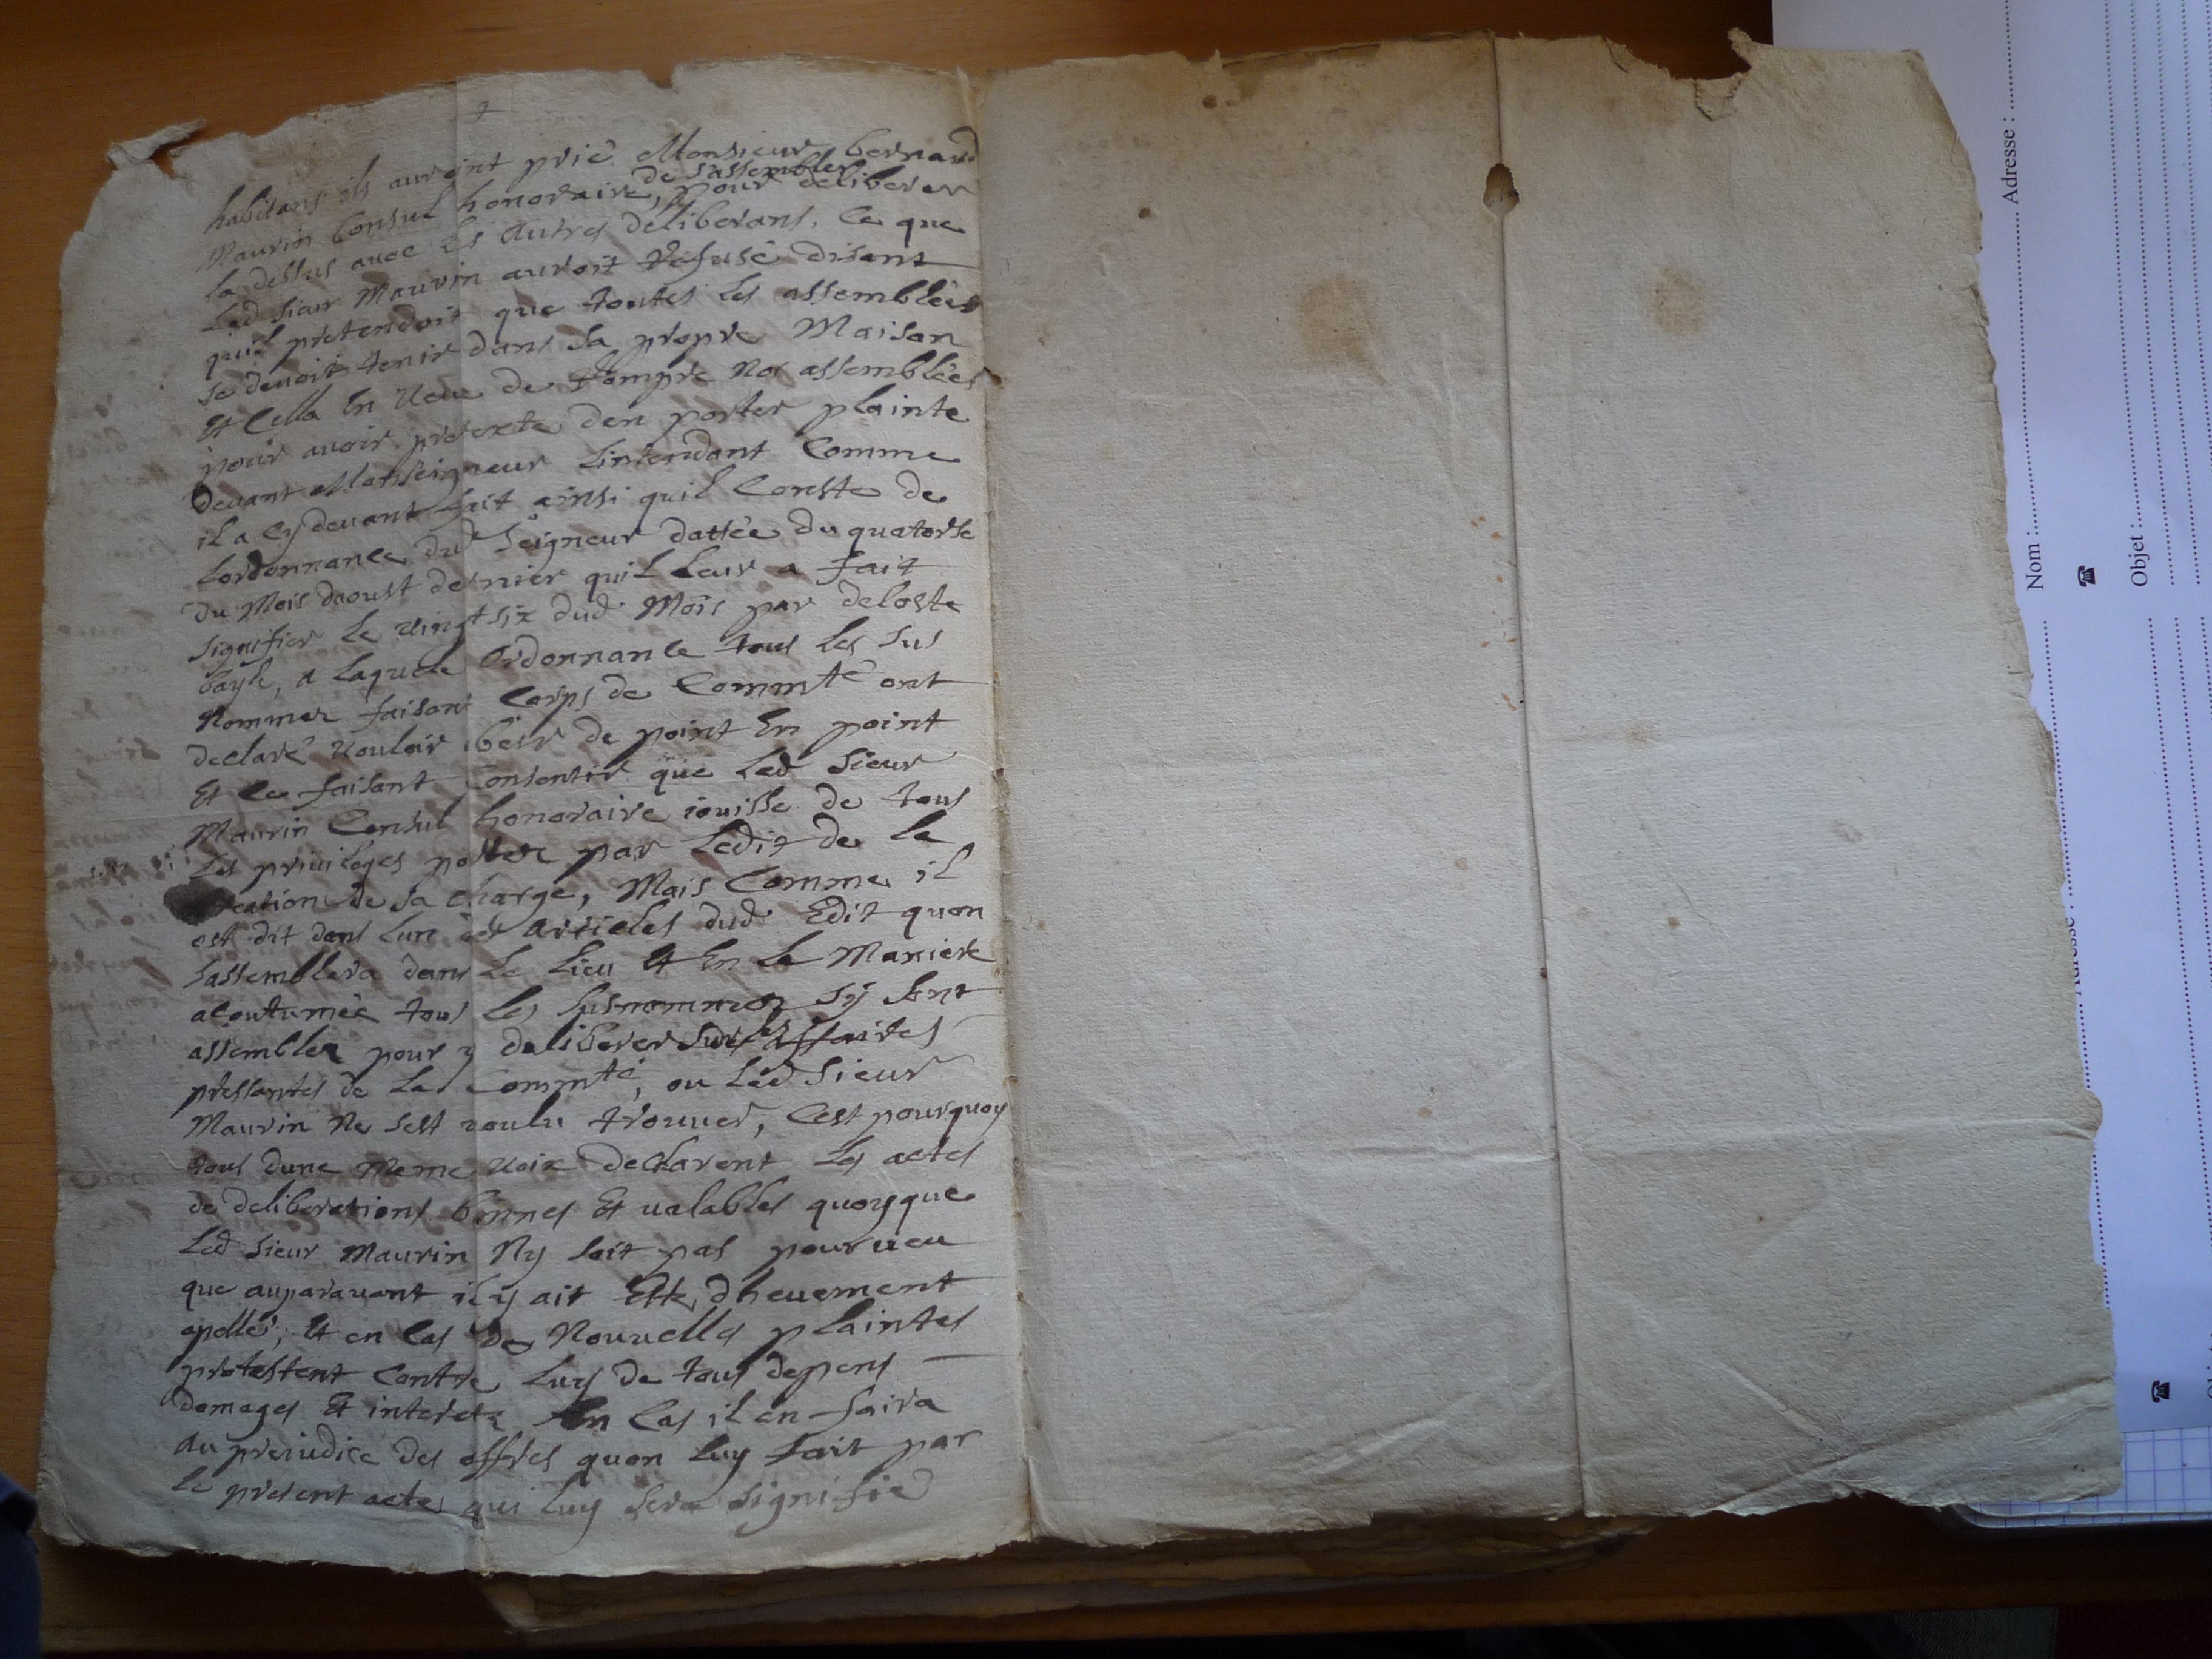 habitans ils auroint prié Monsieur bernard
Maurin Consul honoraire, de sassembler pour deliberer
la dessus avec les autres deliberans, Ce que
Led sieur Maurin auroit refusé disant
quil pretendoit que toutes les assemblées
se devoit tenir dans sa propre Maison
Et Cella En veue de rompre Nos assemblées
pour avoir pretexte den porter plainte
devant Monseigneur Lintendant Comme
il a Cy devant fait ainsi quil Conste de
Lordonnance dud Seigneur dattée du quatorse
du Mois daoust dernier quil leur a fait
signifier le vingt six dud Mois par deloste
bayle, a laquele ordonnance tous les sus
Nommez faisant Corps de Commté ont
declaré vouloir obeir de point En point
Et Ce faisant Consentir que Led Sieur
Maurin Consul honoraire iouisse de tous
Les privileges portez par Ledit de la
creation de sa charge, Mais Comme il
est dit dans lun des articles dud Edit quon
sassemblera dans Le Lieu Et En la Maniere
acoutumée tous les susnommez sy sont
assemblez pour y deliberer sur les affaires
pressantes de La Commté, ou Led Sieur
Maurin Ne sest voulu trouver, Cest pourquoy
tous dune Meme voix declarent les actes
de deliberations bonnes Et valables quoyque
Led sieur Maurin Ny soit pas pourveu
que auparavant il y ait Etté dheuement
apellé, Et en Cas de Nouvelles plaintes
protestent Contre Luy de tous depens
domages Et interetz En Cas il en faira
au preiudice des offres quon Luy fait par
le present acte qui luy sera signifié
Nom :
Adresse :
Objet :
Adresse :